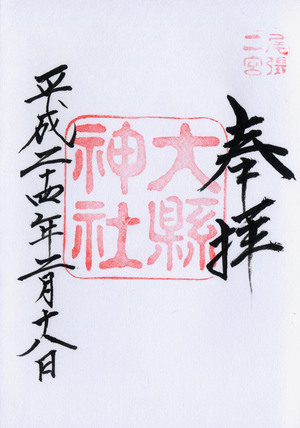 尾張
二宮
奉拝
大縣
神社
平成二十四年二月十八日